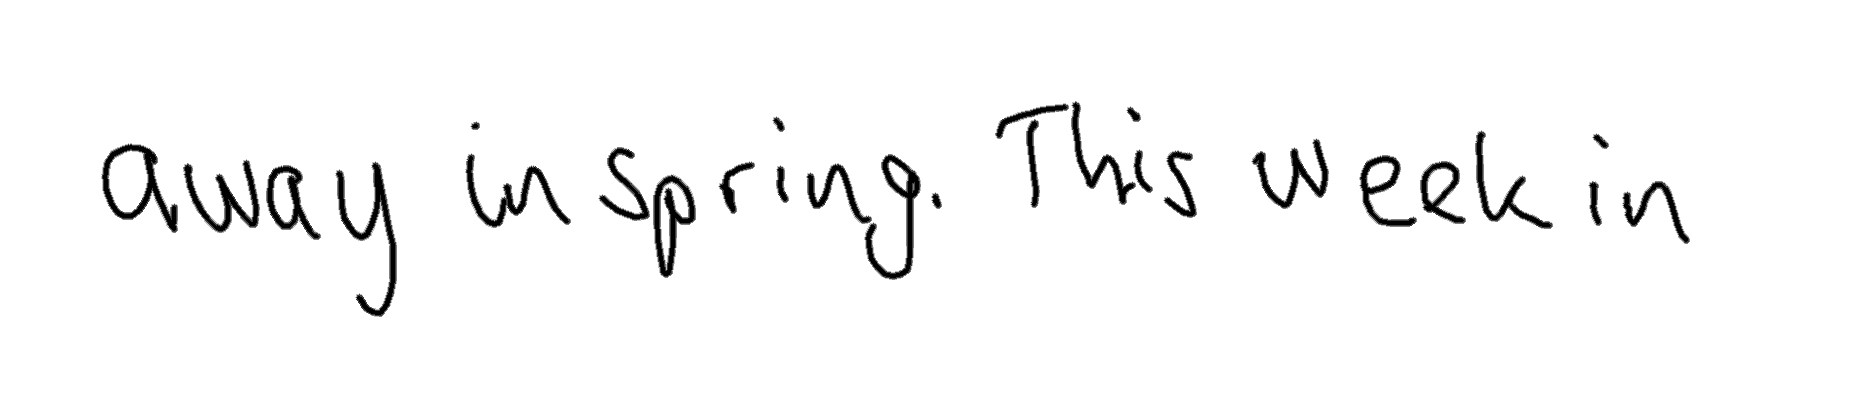 away in spring. This week in